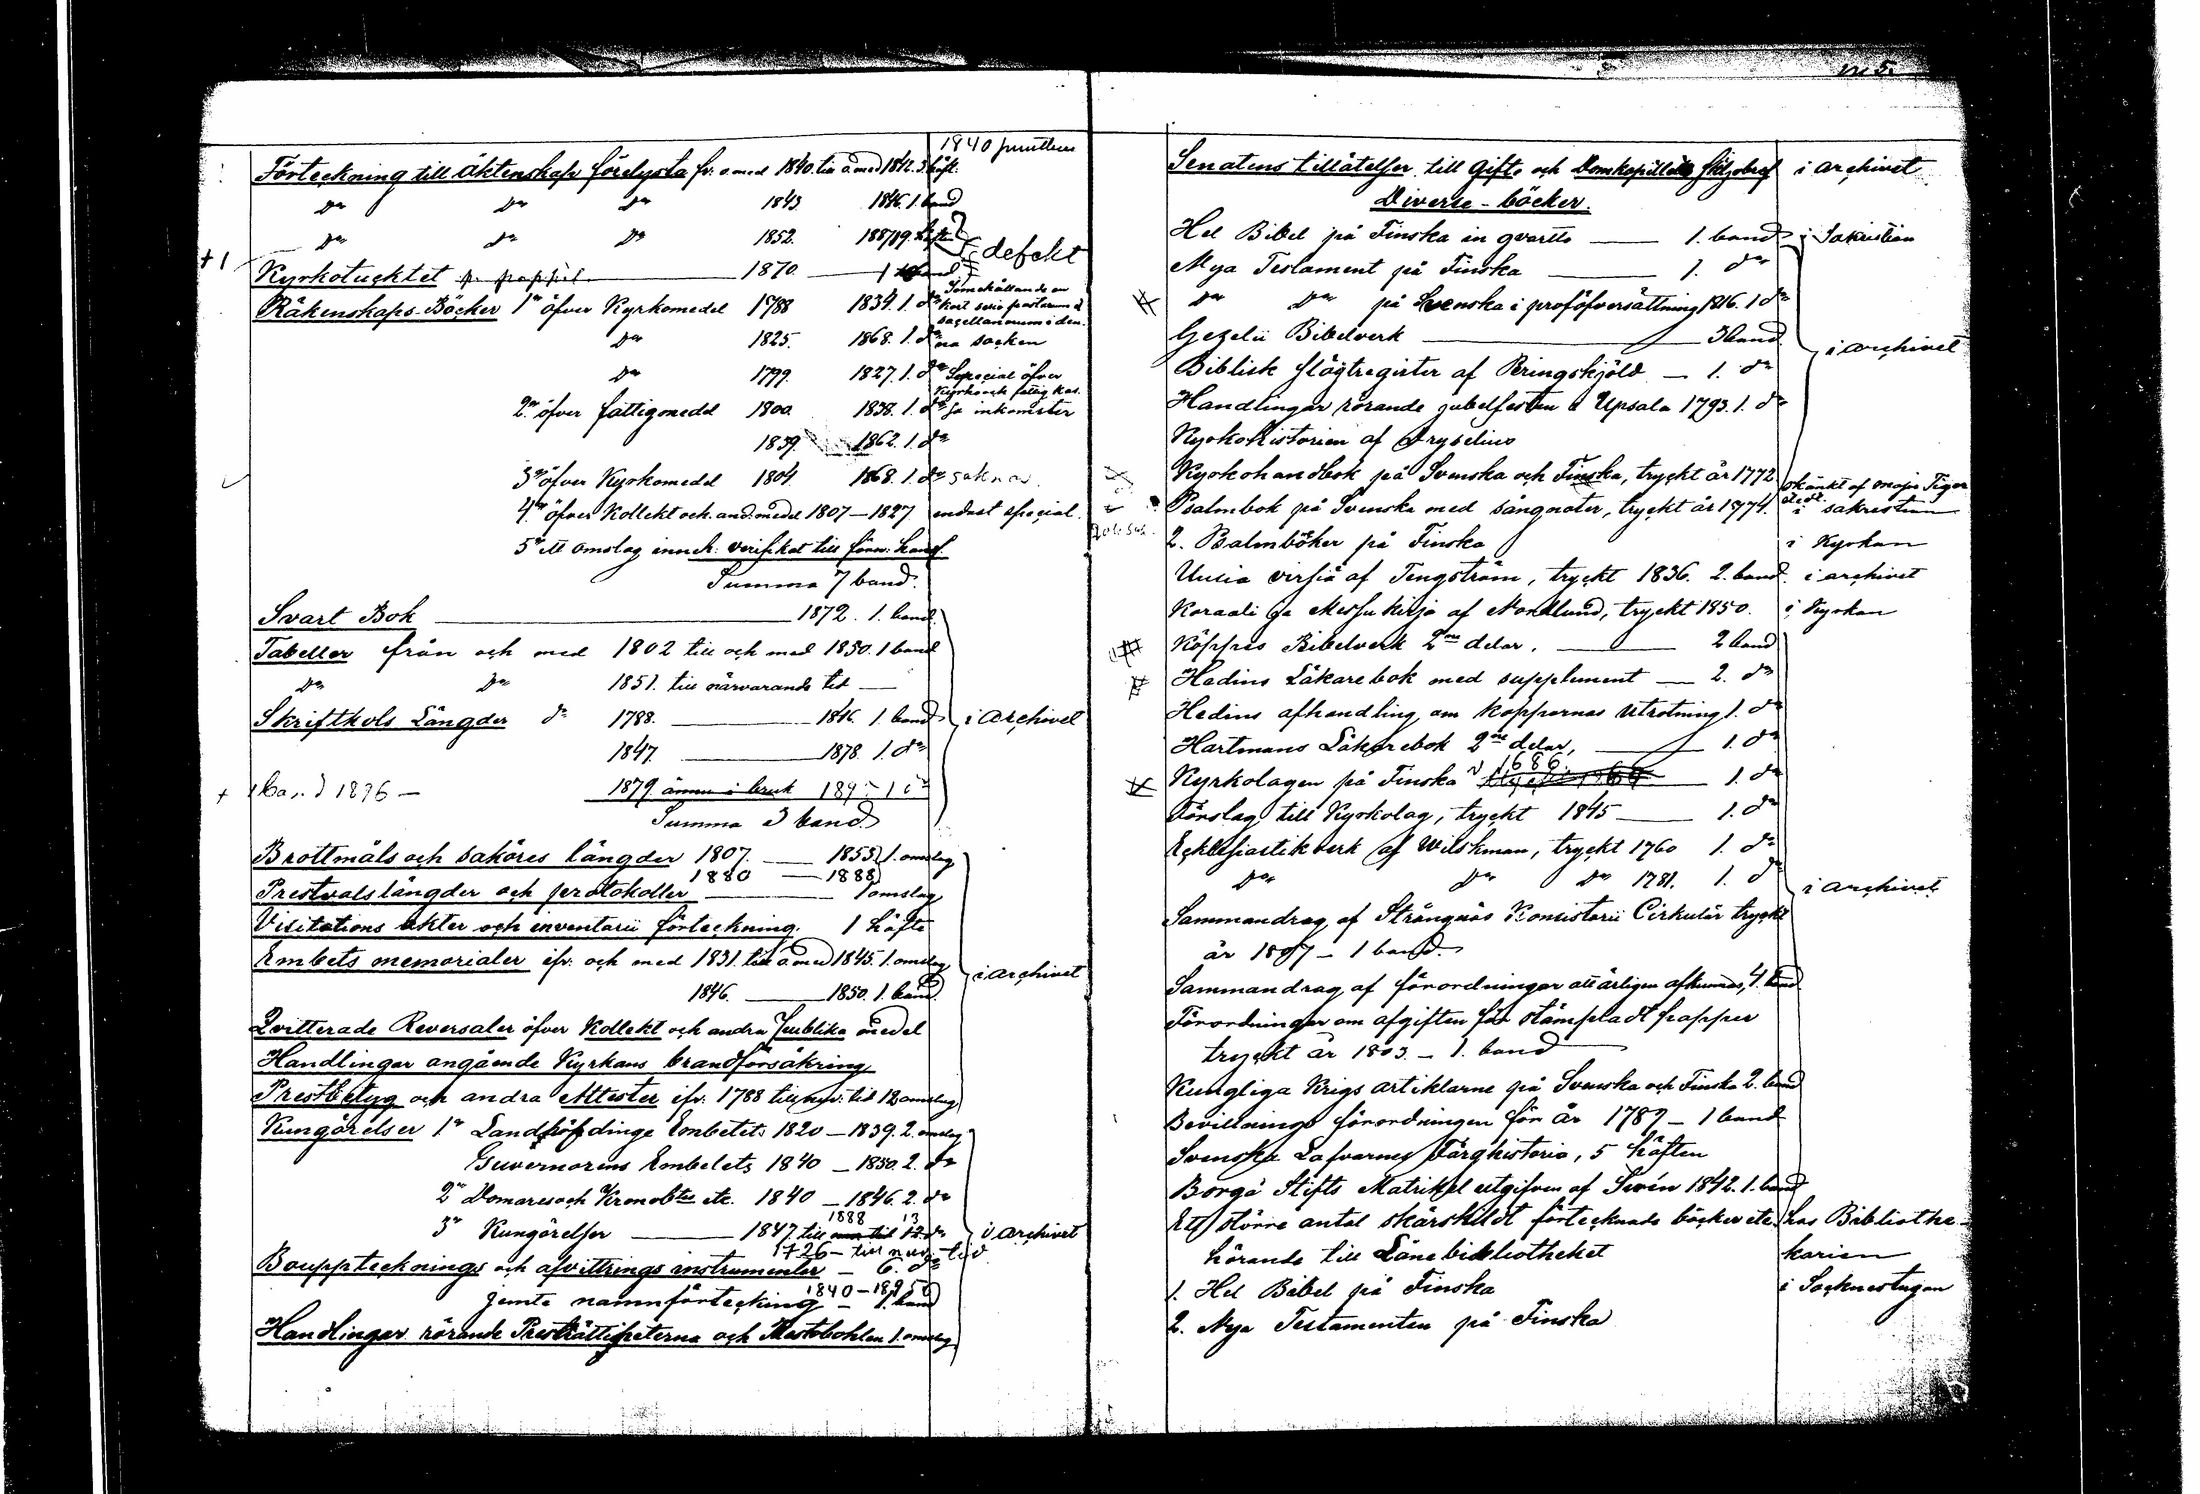 1840 
Förteckning till Äktenskaps förelysta fr. o med 1840. till o. med 1842. 3 häft.
Do Do Do 1843 1846. 1. band
Do Do Do 1852. 19. häften
defekt
+1
Kyrkotucktet 1870. 1 band
Räkenskaps-Böcker 1o öfver Kyrkomedel 1788 1834. 1. do
Do 1825. 1868. 1. do
na socken
Do 1799. 1827. 1. do Special öfver
Kyrko och fattig kas.
2o öfver fattigmedel 1800. 1838. 1. do sa inkomster
1839. 1862. 1. do
3o öfver Kyrkomedel 1804. 1868. 1. do saknas.
4o öfver Kollekt och. and. medel 1807 — 1827 endast special.
5o Ett omslag inneh. verifikat till förew. handl.
Summa 7 band.
Svart Bok 1872. 1. band
Tabeller från och med 1802 till och med 1850. 1 band
Do Do 1851. till närvarande tid —
Skriftkols Längder do 1788. 1846. 1. band i archivet
1847. 1878. 1. do
+ 1 band 1896 — 1879 ännu i bruk 1895 1 do
Summa 3 band
Brottmåls och saköres längder 1807. — 1853 1. omslag
1880 — 1888
Prestvalslängder och protokoller 1 omslag
Visitations akter och inventarii förteckning. 1 häfte
Embets memorialer ifr. och med 1831. till o med 1845. 1. omslag
i archivet
1846. 1850. 1. band
Qvitterade Reversaler öfver Kollekt och andra Publika medel
Handlingar angående Kyrkans brandförsäkring
Prestbetyg och andra Attester ifr. 1788 till nuv. tid 12 omslag
Kungörelser 1o Landshöfdinge Embetets 1820 — 1839. 2. omslag
Guvernörens Embetets 1840 — 1850. 2. do
2o Domares och Kronobtes etc. 1840 — 1846. 2. do
1888 13
3o Kungörelser 1847 till nuv. tid 12 do i archivet
1726 — till nuv. tid
Bouppteckning och afvittrings instrumenter — 6. do
1840 — 1895
jemte namnförteckning — 1. band
Handlingar rörande Presträttigheterna och Mastobohlen 1. omslag
N 5.
Senatens tillåtelser till Gifte och Domkapitlets skiljobref i archivet
Diverse-böcker.
Hel Bibel på Finska in qvarto — 1. band i Sakristian
Nya Testament på Finska — 1. do
Do Do på Svenska i proföfversättning 1816. 1 do
Gezelii Bibelverk 3 band
i archivet
Biblisk slägtregister af Peringskjöld — 1. do
Handlingar rörande jubelfesten i Upsala 1793. 1. do
Kyrkohistorien af Rryzelius
Kyrkohandbok på Svenska och Finska, tryckt år 1772.
skänkt af major Tiger
stedt.
Psalmbok på Svenska med sångnoter, tryckt år 1774. i sakristian
2. Psalmböker på Finska i Kyrkan
Uusia virsiä af Tengström, tryckt 1836. 2. band. i archivet
Koraali ja Messu kirja af Nordlund, tryckt 1850. i Kyrkan
Köppes Bibelverk 2ne delar. 2 band
Hadins Läkarebok med supplement — 2. do
Hedins afhandling om koppornas utrotning 1. do
Hartmans Läkarebok 2ne delar, 1. do
1686.
Kyrkolagen på Finska 1. do
Förslag till Kyrkolag, tryckt 1845 — 1. do
Ecklesiastikverk af Wilskman, tryckt 1760 1. do
Do Do Do 1781. 1. do
i archivet
Sammandrag af Strängnäs Konsistorii Cirkulär tryckt
år 1807 — 1 band.
Sammandrag af förordningar att årligen afkunnas, 4. band
Förordningar om afgiften för stämpladt papper
tryckt år 1803. — 1. band
Kungliga Krigs artiklarne på Svenska och Finska 2. band
Bevillnings förordningen för år 1789 — 1 band
Svenska Lafvarnes Färghistoria, 5 häften
Borgå Stifts Matrikel utgifven af Sirén 1842. 1. band
Ett större antal skärskildt förtecknade böcker etc. hos Bibliothe-
hörande till Lånebibliotheket karien
1. Hel Bibel på Finska i Socknestugan
2. Nya Testamenten på Finska